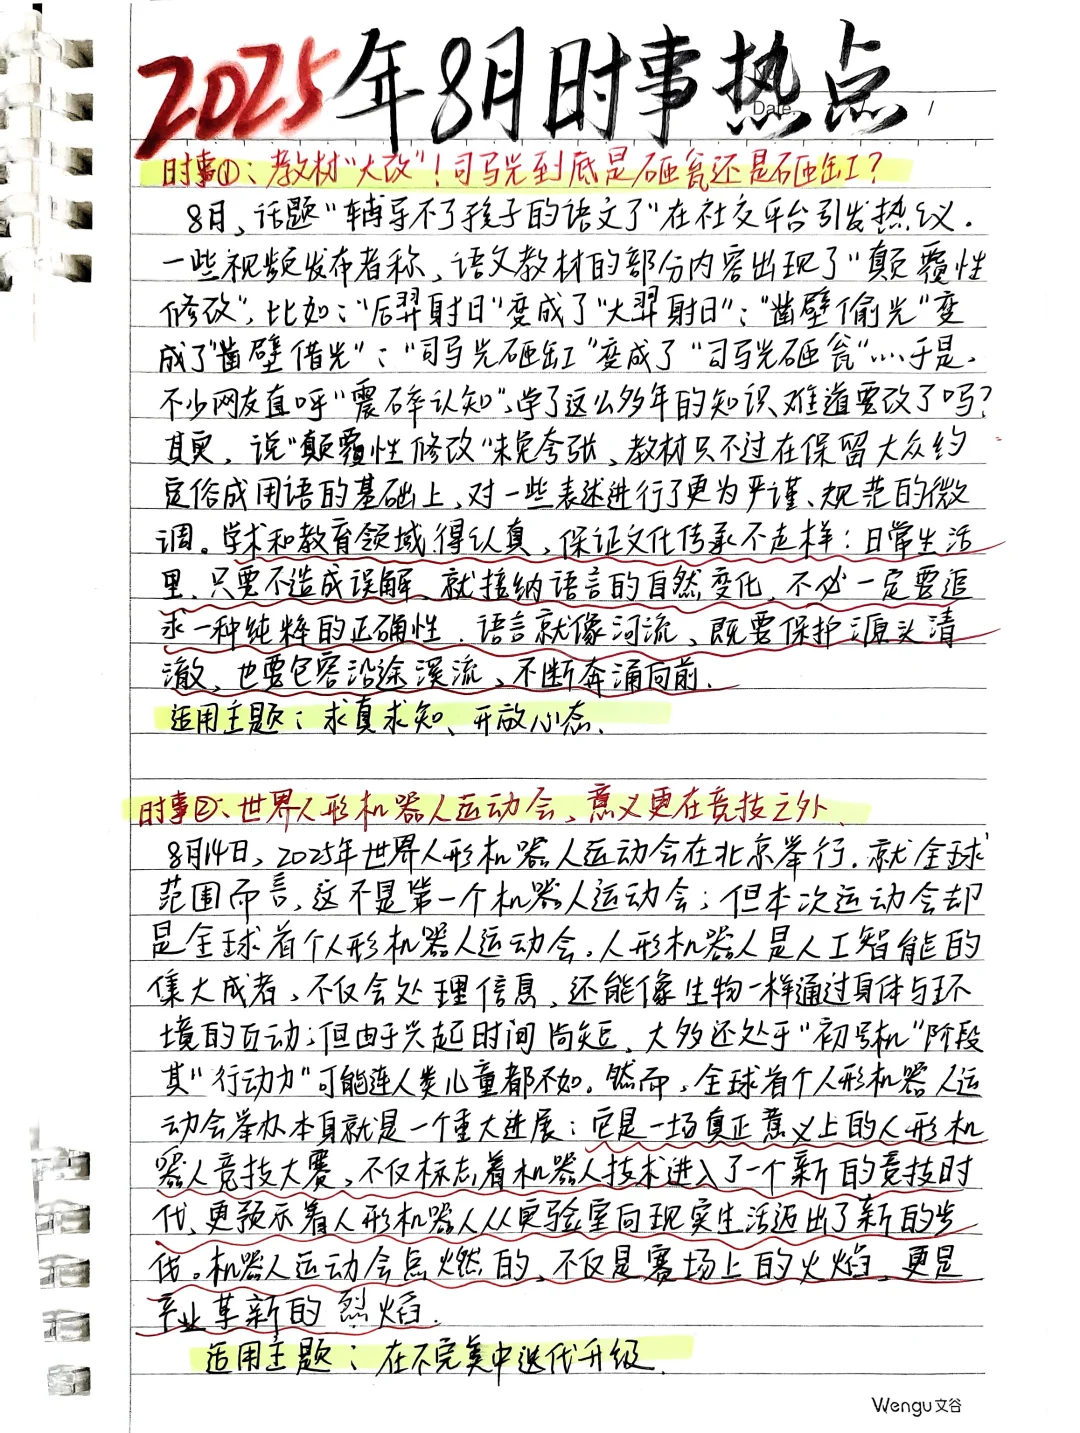 2025年8月时事热点
Date. /
时事①:教材"大改"!司马光到底是砸瓮还是砸缸?
8月,话题"辅导不了孩子的语文了"在社交平台引发热议.
一些视频发布者称,语文教材的部分内容出现了"颠覆性
修改",比如:"后羿射日"变成了"大羿射日";"凿壁偷光"变
成了"凿壁借光";"司马光砸缸"变成了"司马光砸瓮"……于是.
不少网友直呼"震碎认知",学了这么多年的知识,难道要改了吗?
其实,说"颠覆性修改"未免夸张,教材只不过在保留大众约
定俗成用语的基础上,对一些表述进行了更为严谨、规范的微
调。学术和教育领域,得认真,保证文化传承不走样:日常生活
里,只要不造成误解,就接纳语言的自然变化,不必一定要追
求一种纯粹的正确性.语言就像河流,既要保护源头清
澈,也要包容沿途溪流,不断奔涌向前.
适用主题:求真求知、开放心态、
时事②:世界人形机器人运动会,意义更在竞技之外.
8月14日,2025年世界人形机器人运动会在北京举行.就全球
范围而言,这不是第一个机器人运动会;但本次运动会却
是全球首个人形机器人运动会.人形机器人是人工智能的
集大成者,不仅会处理信息,还能像生物一样通过身体与环
境的互动;但由于兴起时间尚短,大多还处于"初号机"阶段
其"行动力"可能连人类儿童都不如。然而,全球首个人形机器人运
动会举办本身就是一个重大进展:它是一场真正意义上的人形机
器人竞技大赛,不仅标志着机器人技术进入了一个新的竞技时
代,更预示着人形机器人从实验室向现实生活迈出了新的步
伐。机器人运动会点燃的,不仅是赛场上的火焰,更是
产业革新的烈焰.
适用主题:在不完美中迭代升级.
Wengu文谷